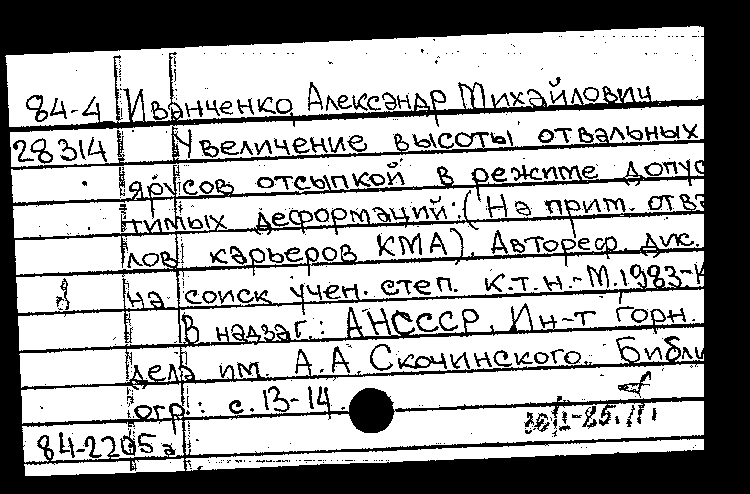 84-4 Иванченко, Александр Михайлович
28314 Увеличение высоты отвальных
ярусов отсыпкой в режиме допус
тимых деформаций: (На прим. отва
лов карьеров КМА). Автореф. дис.
на соиск учен. степ. к.т.н.-М.1983-
В надзаг.: АН СССР, Ин-т горн.
дела им. А.А. Скочинского. Библи
огр: с. 13-14
84-2205а